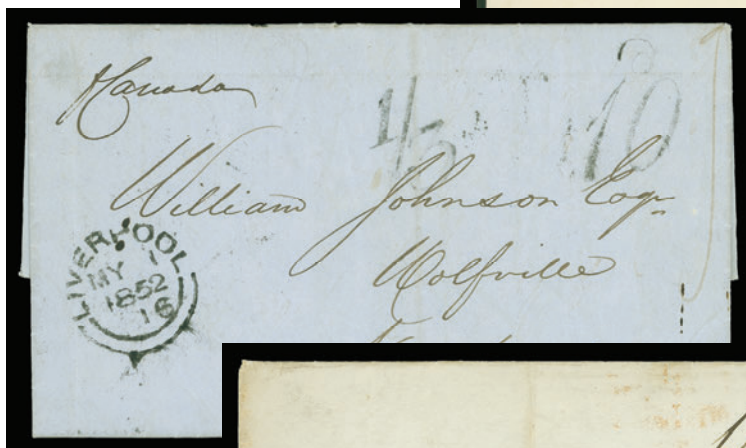 pCanada
1/3 10
William Johnson Esqr
Wolfville
LIVERPOOL
MY 1
1852
16